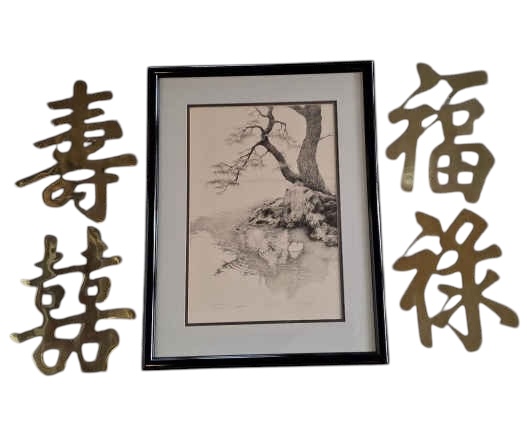 壽
囍
福
祿